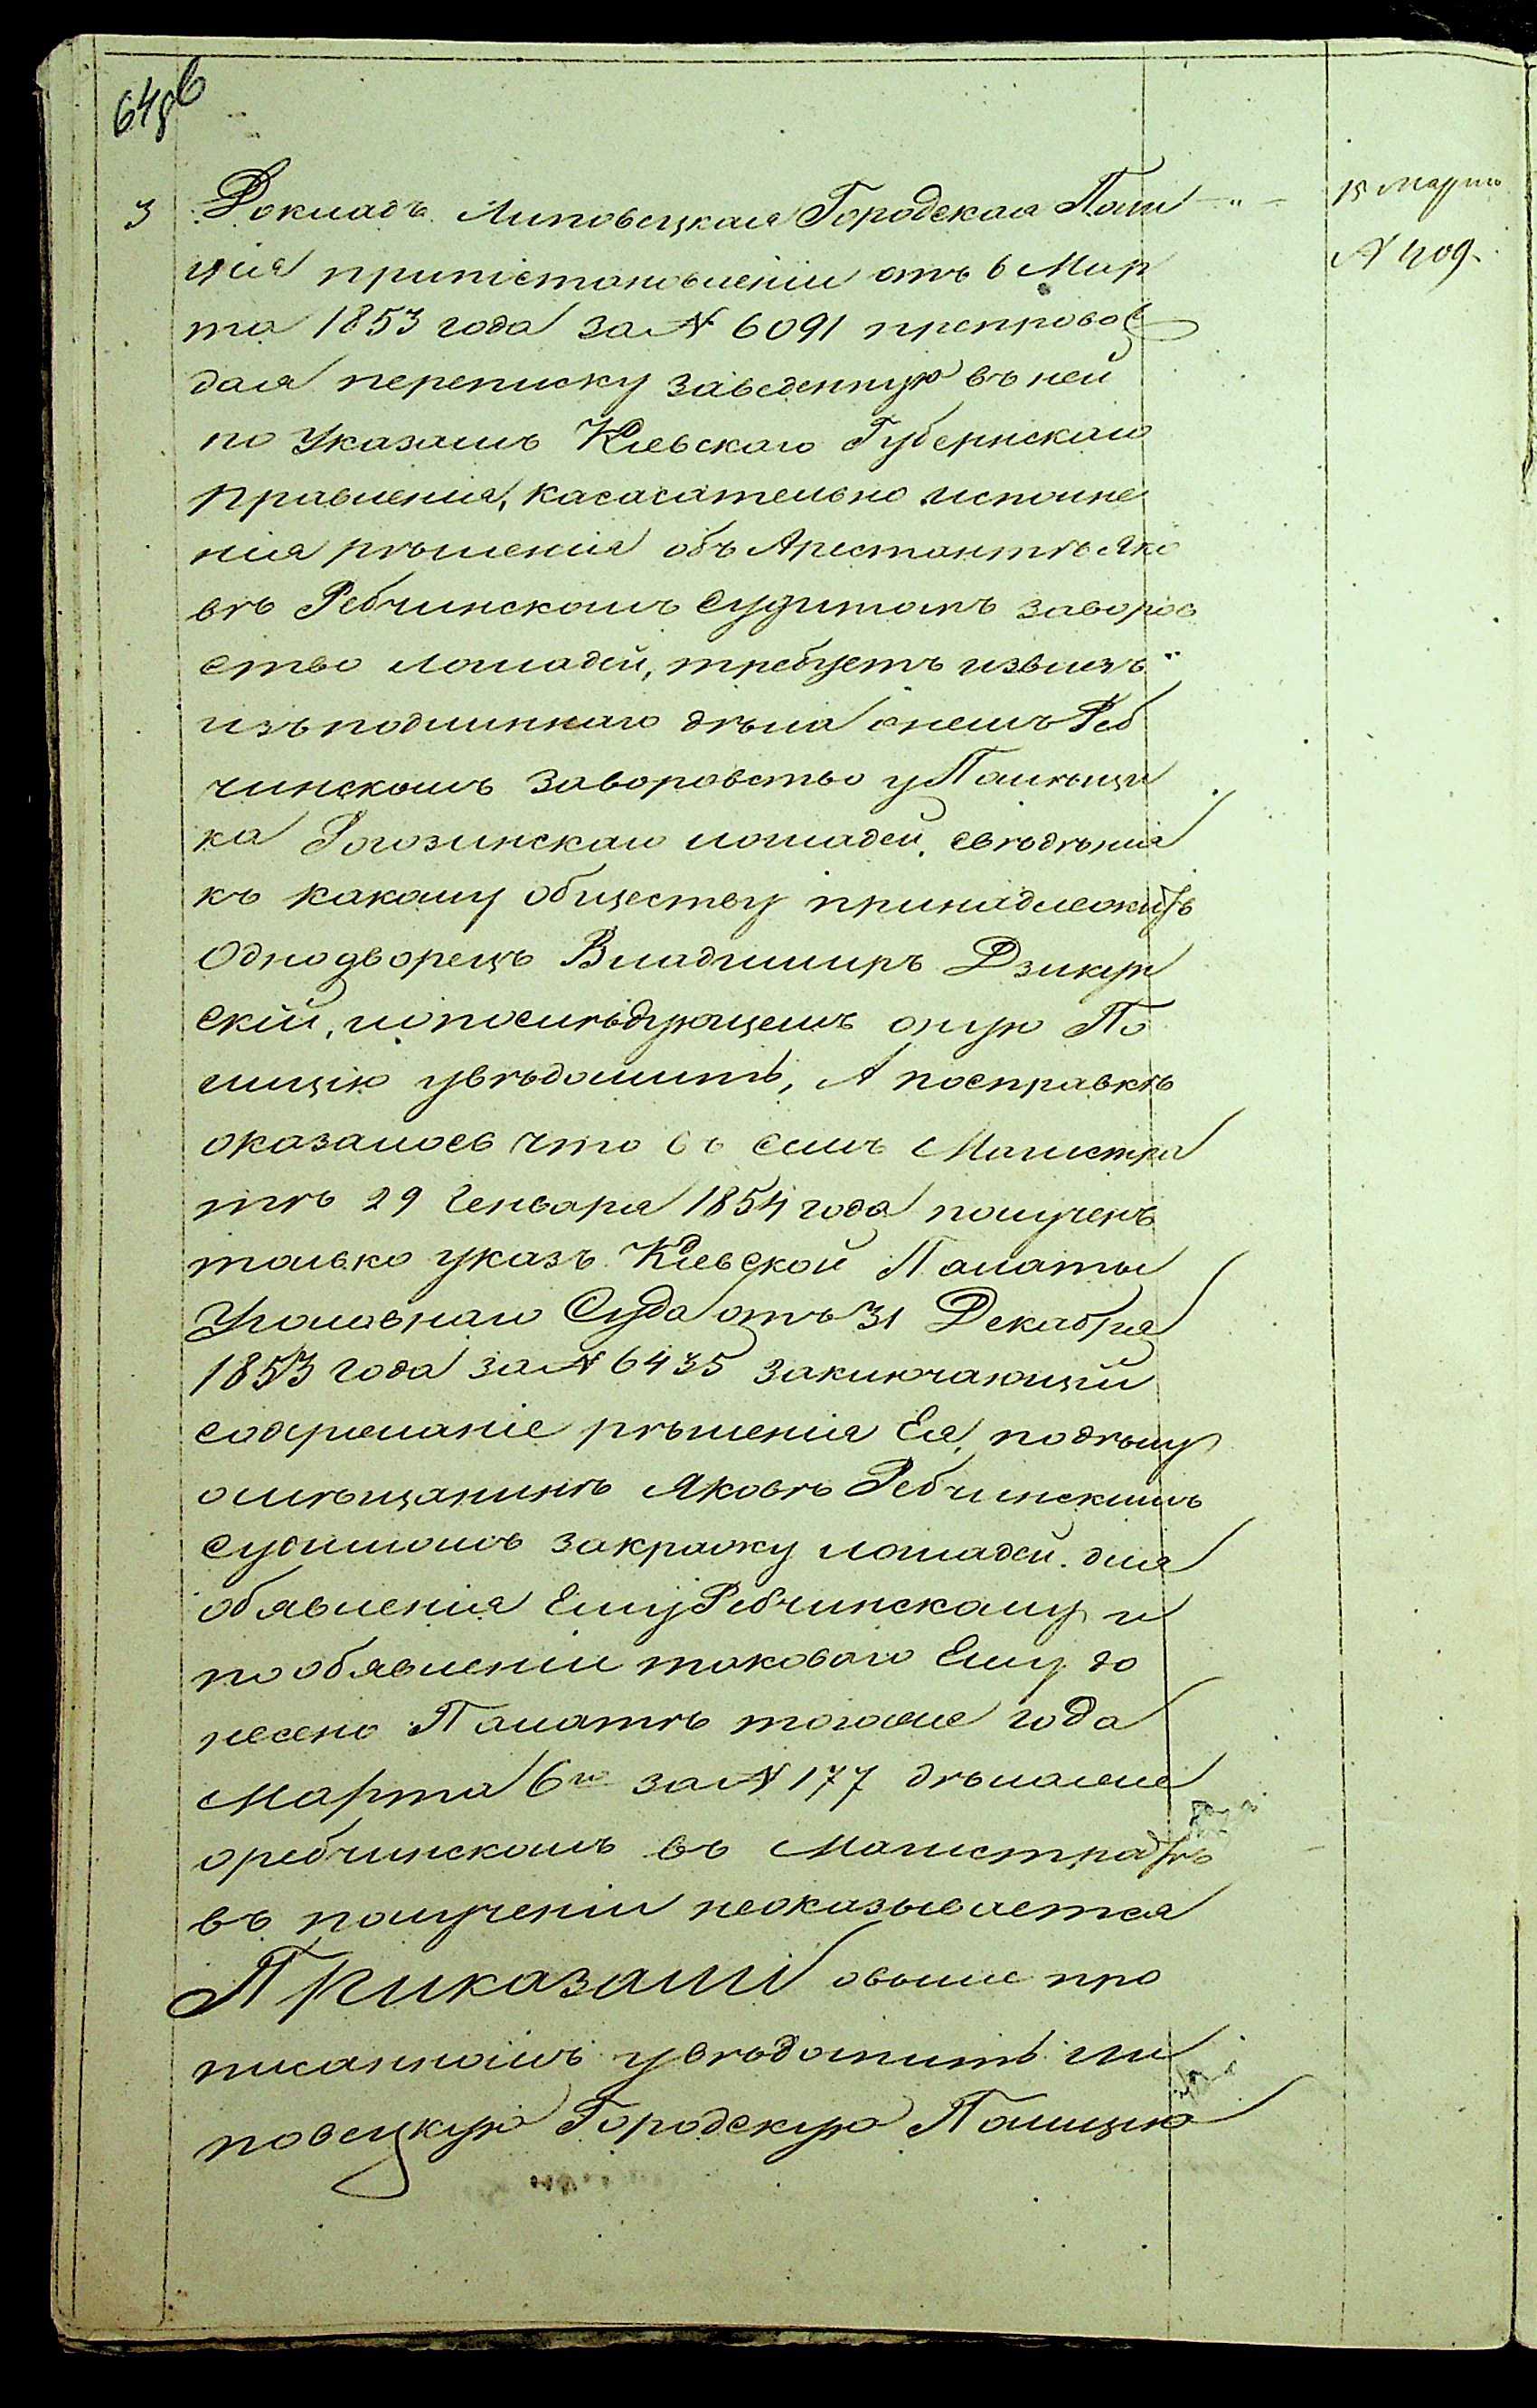 3 Докладъ. Липовецкая Городская Поли
ція припістановленіи отъ 6 Мар
та 1853 года за № 6091 препрово
дая переписку заведенную въ ней
по Указамъ Кіевскаго Губернскаго
Правленія, касасательно исполне
нія рѣшенія объ Арестантѣ Яко
вѣ Ребчинскомъ судимомъ заворов
ство лошадей, требуетъ
изъ подлиннаго дѣла онемъ Реб
чинскомъ заворовство у Помѣщи
ка Рогозинскаго лошадей, свѣдѣнія
къ какому обществу принадлежитъ
Однодворецъ Владимиръ
скій, ипослѣдующемъ оную По
лицію увѣдомить, А посправкѣ
оказалось что въ семъ Магистра
тѣ 29 Генваря 1854 года полученъ
только указъ Кіевской Палаты
Уголовнаго Суда отъ 31 Декабря
1853 года за № 6435 заключающій
содержаніе рѣшенія Ея, подѣлу
омѣщанинѣ Яковѣ Ребчинскимъ
судимомъ закражу лошадей. для
объявленія Ему Ребчинскому, и
пообявленіи таковаго Ему до
несено Палатѣ тогоже года
Марта 6го за № 177 дѣлаже
оребчинскомъ въ Магистратѣ
въ полученіи неоказывается
Приказали овыше про
писанномъ увѣдомить Ли
повецкую Городскую Полицію
15 Марта
№ 409.